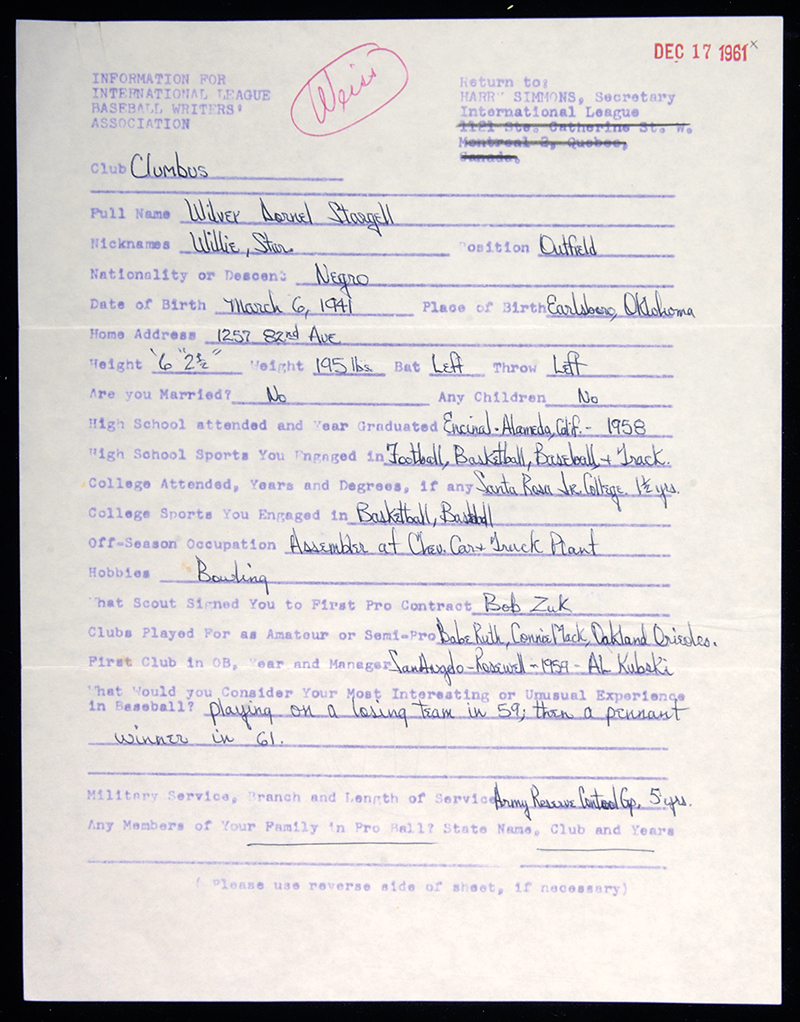 DEC 17 1961 x
Weiss
INFORMATION FOR
INTERNATIONAL LEAGUE
BASEBALL WRITERS'
ASSOCIATION
Return to:
HARRY SIMMONS, Secretary
International League
1121 Ste. Catherine St. W.
Montreal 2, Quebec,
Canada.
Club Clumbus
Full Name Wilver Dornel Stargell
Nicknames Willie, Star Position Outfield
Nationality or Descent Negro
Date of Birth March 6, 1941 Place of Birth Earlsboro, Oklahoma
Home Address 1257 82nd Ave
Height '6 "2½" Weight 195 lbs. Bat Left Throw Left
Are you Married? No Any Children No
High School attended and Year Graduated Encinal - Alameda, Calif. - 1958
High School Sports You Engaged in Football, Basketball, Baseball, + Track.
College Attended, Years and Degrees, if any Santa Rosa Jr. College. 1½ yrs.
College Sports You Engaged in Basketball, Baseball
Off-Season Occupation Assembler at Chev. Car + Truck Plant
Hobbies Bowling
What Scout Signed You to First Pro Contract Bob Zuk
Clubs Played For as Amateur or Semi-Pro Babe Ruth, Connie Mack, Oakland Orioles.
First Club in OB, Year and Manager San Angelo - Rosewell - 1959 - AL Kubski
What Would you Consider Your Most Interesting or Unusual Experience
in Baseball? playing on a losing team in 59; then a pennant
winner in 61.
Military Service, Branch and Length of Service Army Reserve Control Gp. 5 yrs.
Any Members of Your Family in Pro Ball? State Name, Club and Years
( Please use reverse side of sheet, if necessary)